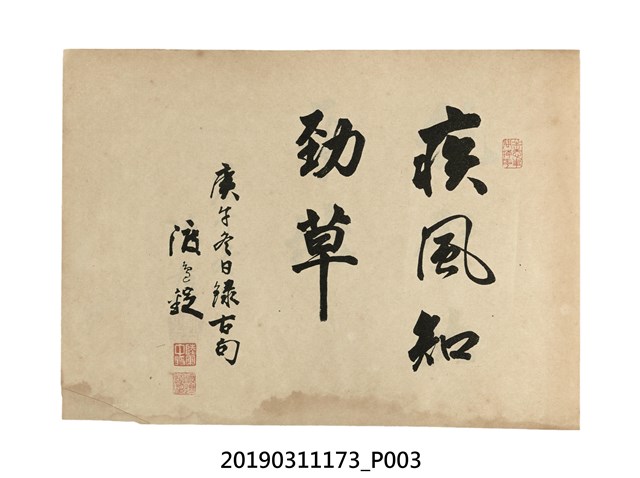 疾風知
勁草
庚午冬日錄古句
20190311173_P003